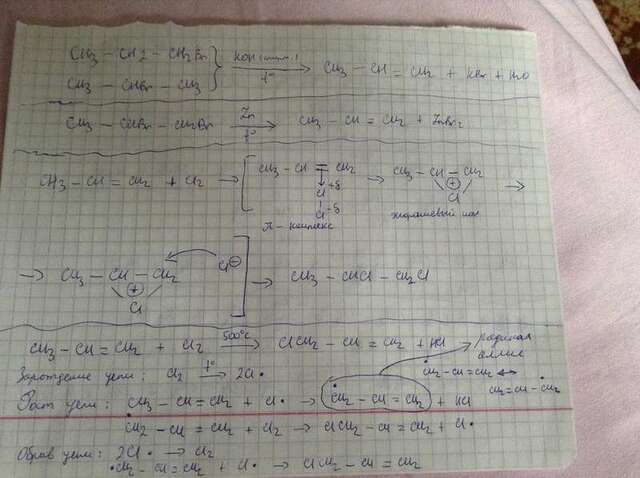 CH3 – CH2 – CH2Br
CH3 – CHBr – CH3
KOH (спирт.) t° → CH3 – CH = CH2 + KBr + H2O
CH3 – CHBr – CH2Br Zn t° → CH3 – CH = CH2 + ZnBr2
CH3 – CH = CH2 + Cl2 → [ CH3 – CH = CH2 → CH3 – CH – CH2 →
Cl+δ
Cl-δ
⊕
Cl
π – комплекс
ион
→ CH3 – CH – CH2 Cl⊖ ] → CH3 – CHCl – CH2Cl
⊕
Cl
CH3 – CH = CH2 + Cl2 500°C → ClCH2 – CH = CH2 + HCl
радикал
аллил
ĊH2 – CH = CH2 ↔
CH2 = CH – ĊH2
Зарождение цепи: Cl2 t° → 2Cl•
Рост цепи: CH3 – CH = CH2 + Cl• → ĊH2 – CH = CH2 + HCl
ĊH2 – CH = CH2 + Cl2 → ClCH2 – CH = CH2 + Cl•
Обрыв цепи: 2Cl• → Cl2
•CH2 – CH = CH2 + Cl• → ClCH2 – CH = CH2